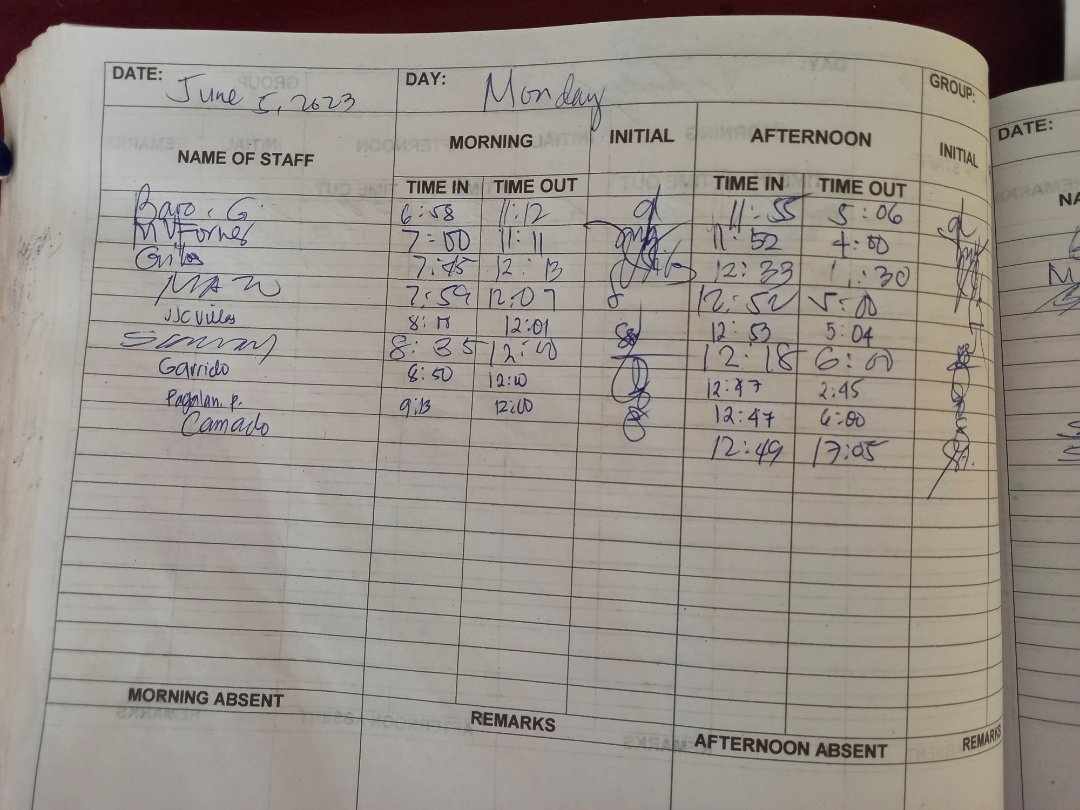 DATE: June 5, 2023 DAY: Monday GROUP:
NAME OF STAFF MORNING INITIAL AFTERNOON INITIAL
TIME IN TIME OUT TIME IN TIME OUT
Baro, G. 6:58 11:12 11:55 5:06
MVFornes 7:00 11:11 11:52 4:00
7:45 12:13 12:33 1:30
7:59 12:07 12:52 5:00
JJC Villas 12:01 12:53 5:04
8:35 12:00 12:18 6:00
Garrido 8:50 12:10 12:47 2:45
Pagalan. P. 9:13 12:00 12:47 6:00
Camado 12:49 17:05
MORNING ABSENT REMARKS AFTERNOON ABSENT REMARKS
DATE:
NA